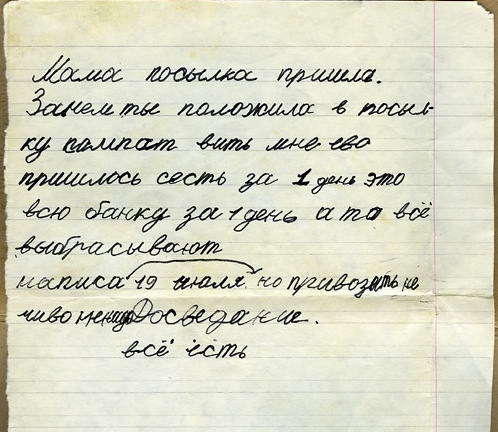 Мама посылка пришла.
Зачем ты положила в посыл-
ку компат вить мне ево
пришлось сесть за 1 день это
всю банку за 1 день а та всё
выбрасывают
написа 19 июля но привозить не
чиво Досведание.
всё есть